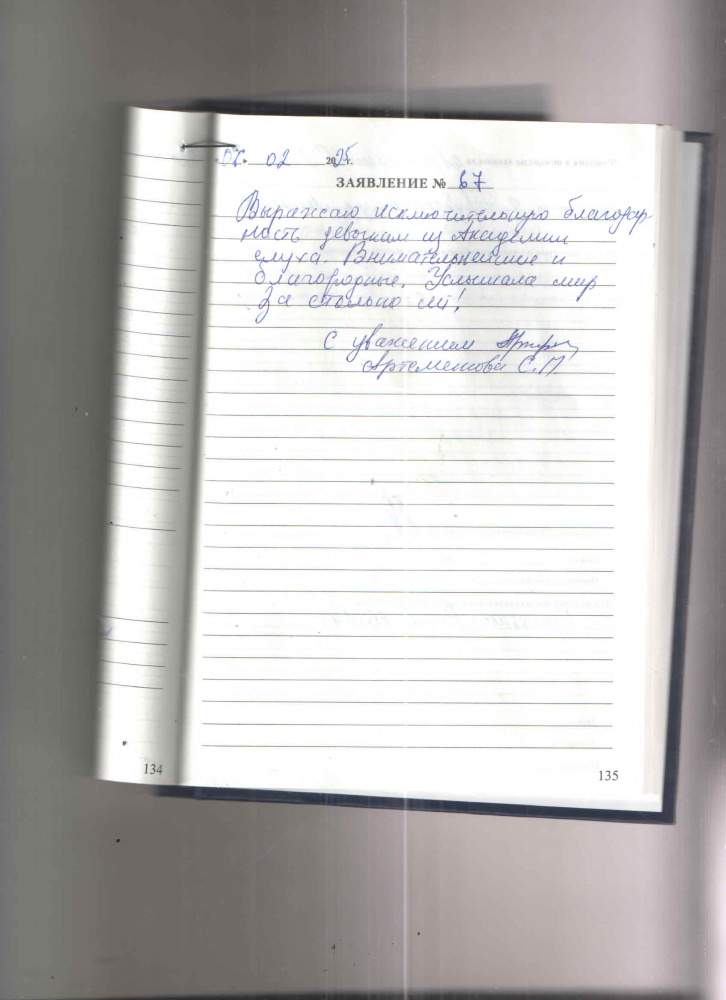 02 2025г.
ЗАЯВЛЕНИЕ № 67
Выражаю исключительную благодар
ность девочкам из Академии
слуха. Внимательнейшие и
благородные. Услышала мир
За столько лет!
С уважением
Артеменкова С.П.
134
135